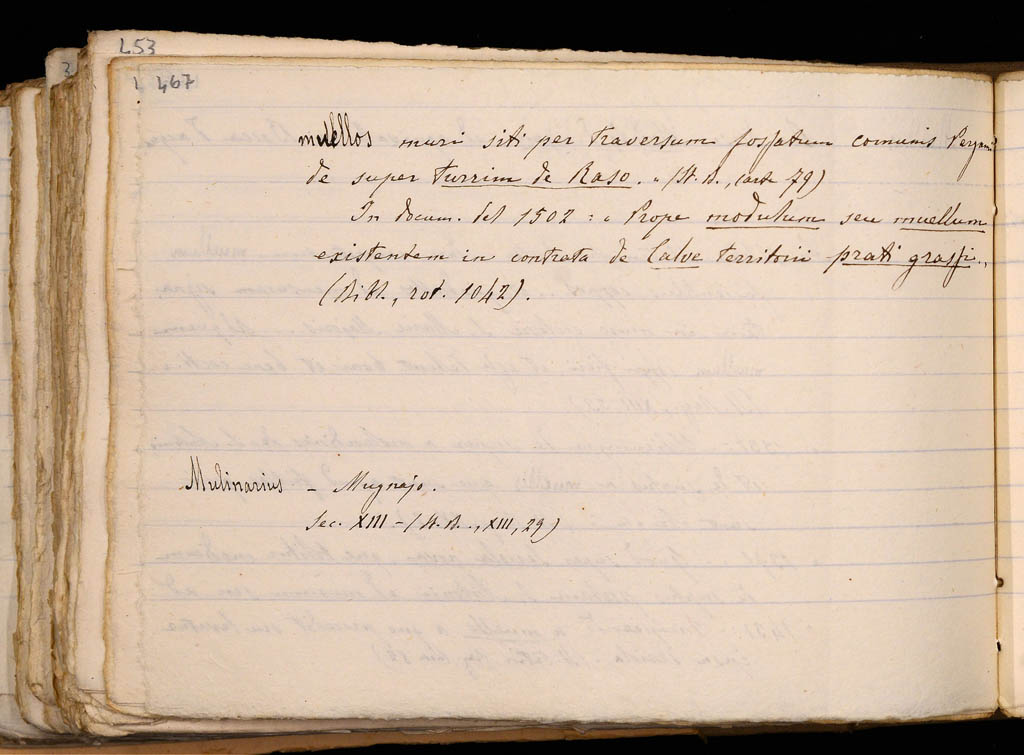 453
3
467
muellos muri siti per traversum fossatum comunis Pergami
de super turrim de Raso. " (St. A., carte 79)
In docum. del 1502 : " Prope modulum seu muellum
existentem in contrata de Calve territorii prati grassi.,
(Bibl., rot. 1042).
Mulinarius - Mugnajo.
Sec. XIII - (St. A., XIII, 29)